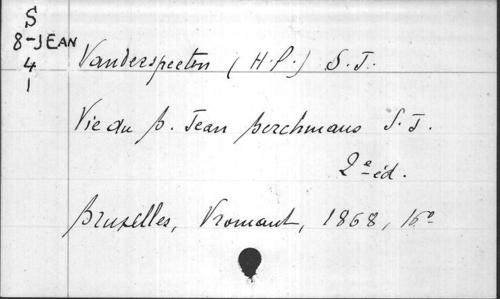 S
8-JEAN
4
1
Vanderspeeten (H-P.) S.J.
Vie du B. Jean Berchmans S.J.
2e éd.
Bruxelles, Vromant, 1868, 16°